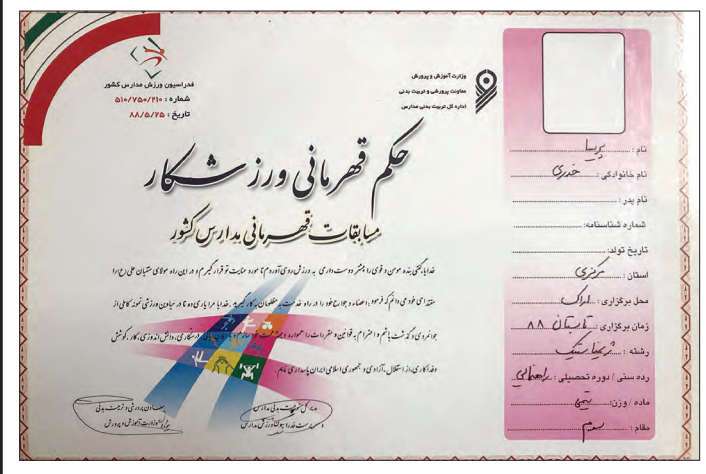 فدراسیون ورزش مدارس کشور
شماره : ۵۱۰/۷۵۰/۲۱۰
تاریخ : ۸۸/۵/۲۵
وزارت آموزش و پرورش
معاونت پرورشی و تربیت بدنی
اداره کل تربیت بدنی مدارس
حکم قهرمانی ورزشکار
مسابقات قهرمانی مدارس کشور
خدایا، گفتی بنده مومن و قوی را بیشتر دوست داری به ورزش روی آوردم تا مورد عنایت تو قرار گیرم و در این راه مولای متقیان علی (ع) را
مقتدای خود می دانم که فرمود: اعضاء و جوارح خود را در راه خدمت به مظلومان به کار گیرید. خدایا مرا یاری ده تا در میادین ورزشی نمونه کاملی از
جوانمردی و گذشت باشم و احترام به قوانین و مقررات را همواره وجهه همت خود سازم و با ایمان، ورزشکاری، دانش اندوزی، کار، کوشش
و فداکاری، از استقلال، آزادی و جمهوری اسلامی ایران پاسداری نمایم.
مدیر کل تربیت بدنی مدارس
و سرپرست فدراسیون ورزش مدارس
معاون پرورشی و تربیت بدنی
وزارت آموزش و پرورش
نام : پریسا
نام خانوادگی : خدری
نام پدر :
شماره شناسنامه:
تاریخ تولد:
استان : مرکزی
محل برگزاری : اراک
زمان برگزاری : تابستان ۸۸
رشته : ژیمناستیک
رده سنی / دوره تحصیلی : راهنمایی
ماده / وزن: تیمی
مقام : سوم